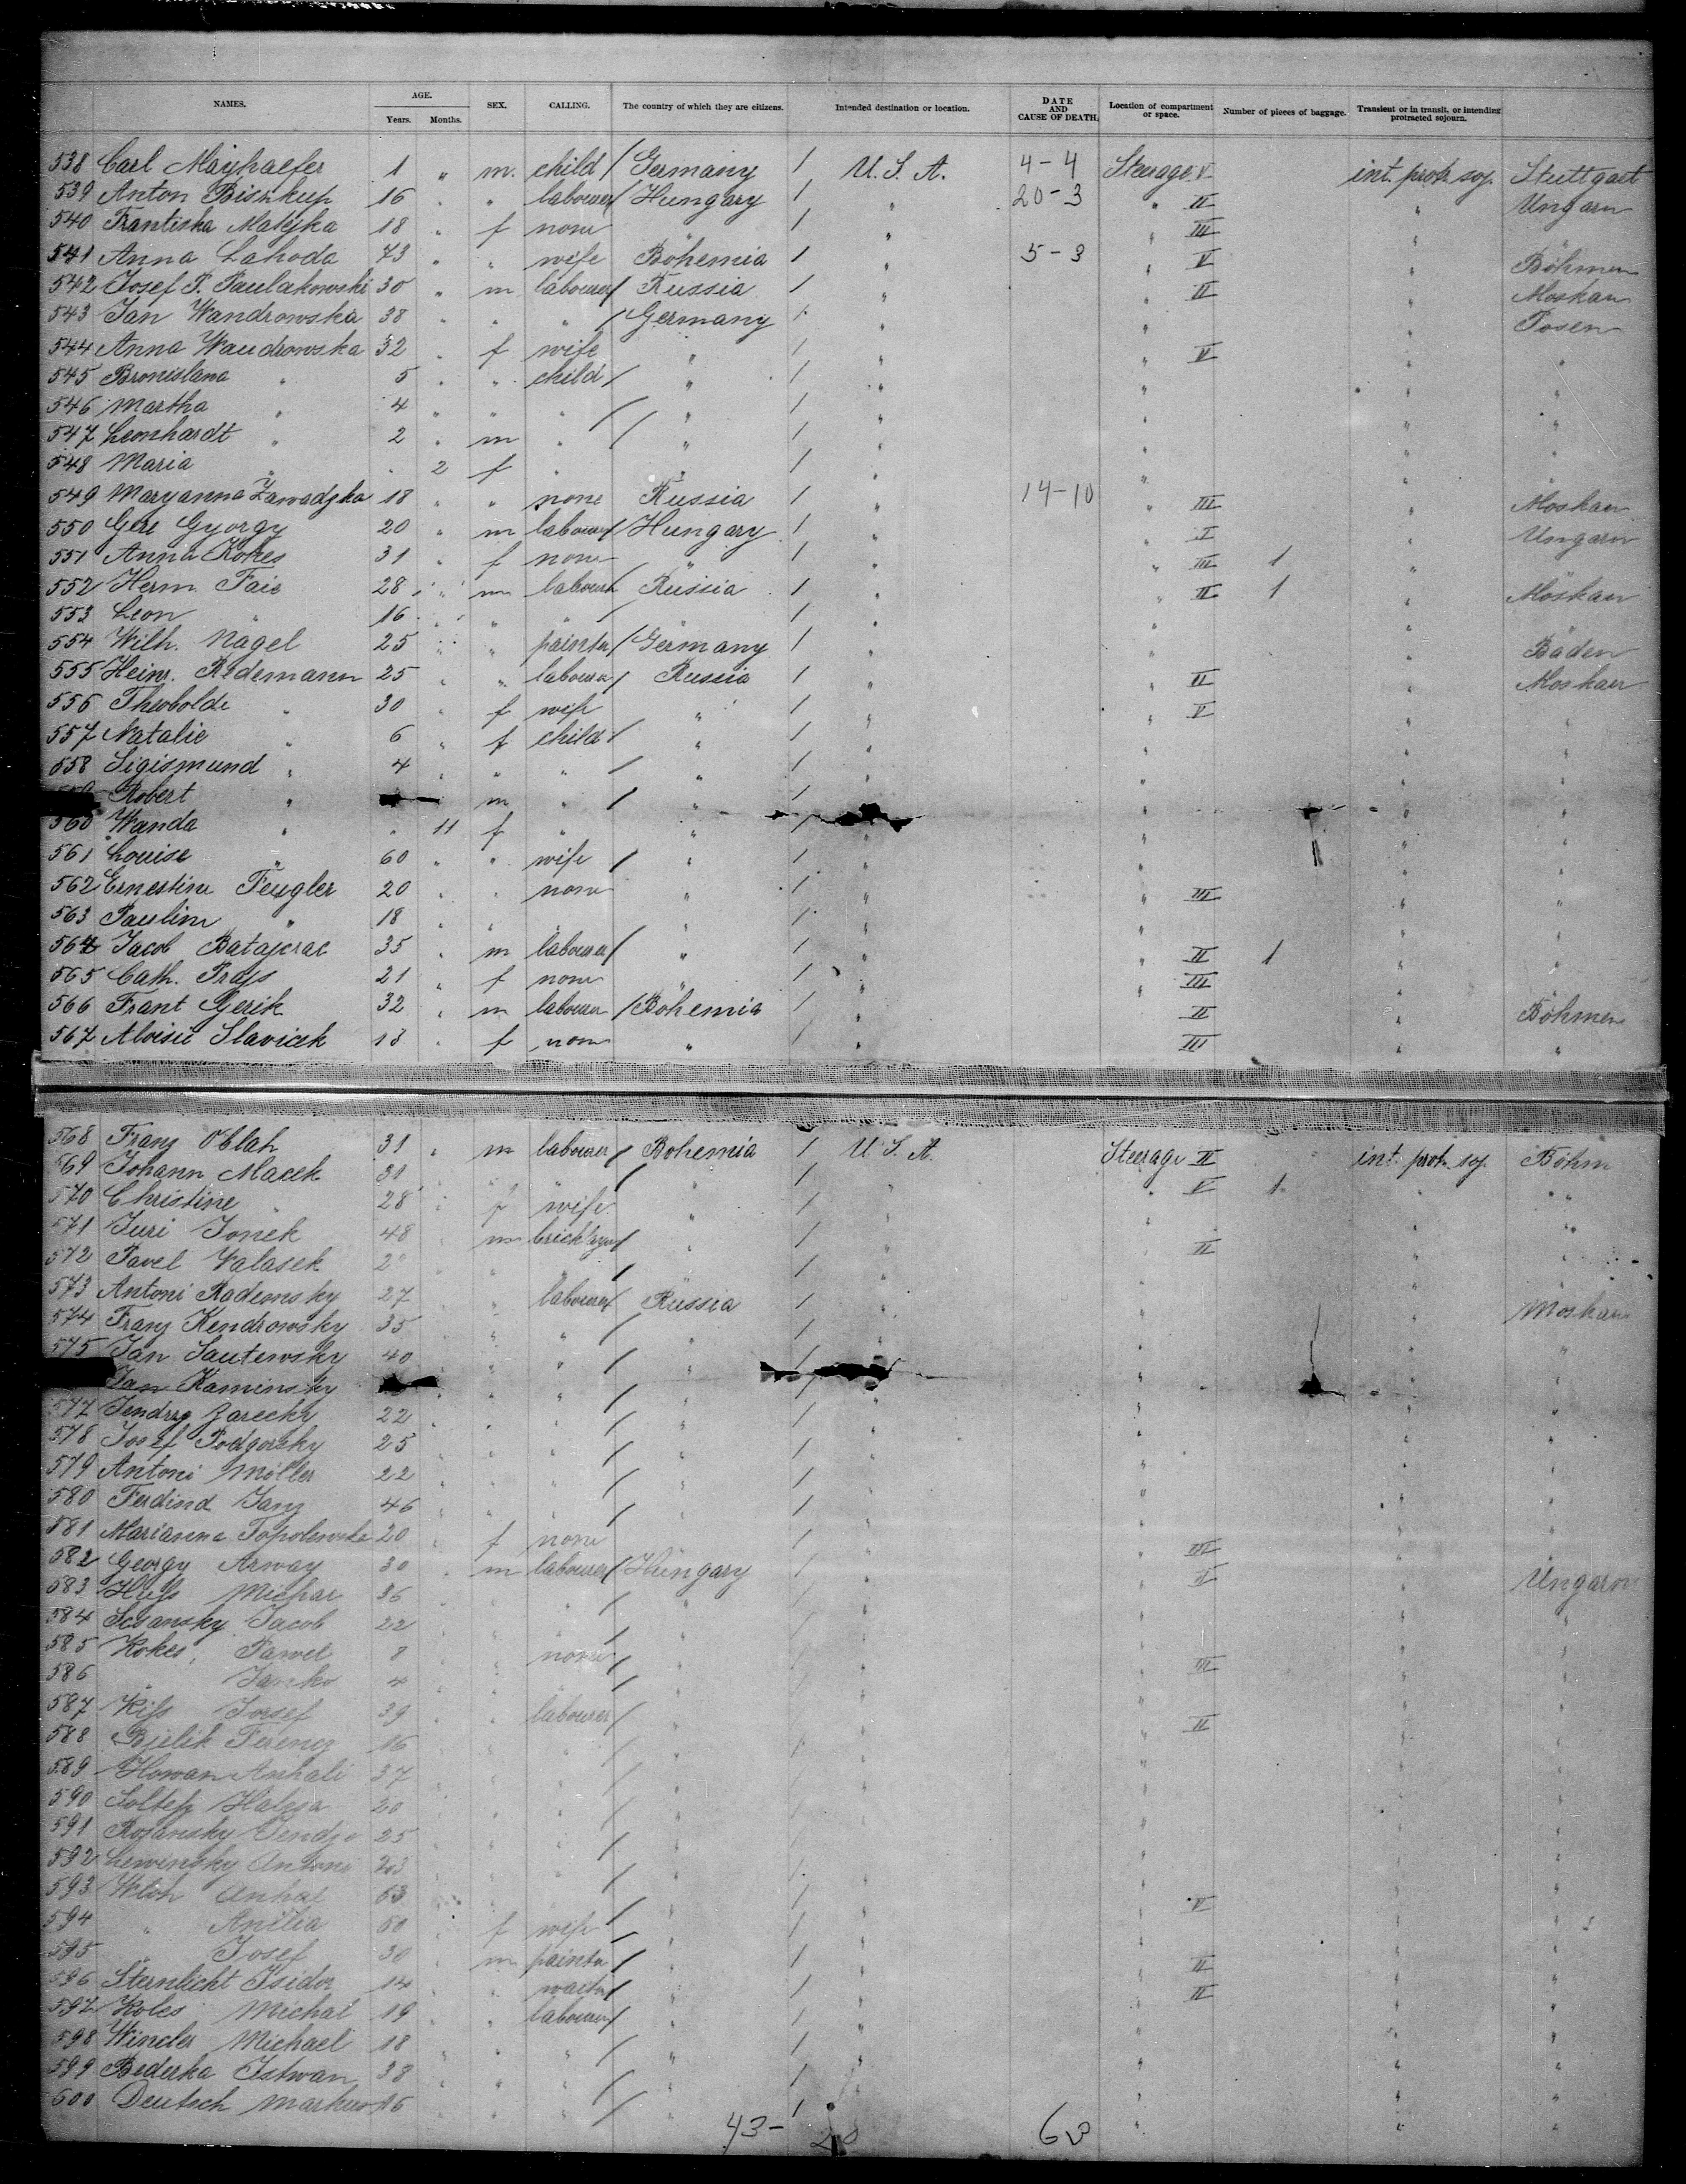 NAMES. AGE. Years. Months. SEX. CALLING. The country of which they are citizens. Intended destination or location. DATE AND CAUSE OF DEATH. Location of compartment or space. Number of pieces of baggage. Transient or in transit, or intending protracted sojourn.
538 Carl Mayhaefer 1 " m. child / Germany 1 U. S. A. 4-4 Steerage V int. protr. soj. Stuttgart
539 Anton Bishkup 16 " " labourer / Hungary 1 " 20-3 " II " Ungarn
540 Frantiska Matejka 18 " f none " 1 " " III "
541 Anna Lahoda 43 " " wife Bohemia 1 " 5-3 " V " Böhmen
542 Josef P. Paulakowski 30 " m labourer / Russia 1 " " II " Moskau
543 Jan Wandrowska 38 " " " / Germany 1 " " " Posen
544 Anna Wandrowska 32 " f wife " 1 " " V " "
545 Bronislava " 5 " " child / " 1 " " " "
546 Martha " 4 " " " / " 1 " " " "
547 Leonhardt " 2 " m " / " 1 " " " "
548 Maria " " 2 f " " 1 " " " "
549 Maryanna Zawadzka 18 " " none Russia 1 " 14-10 " III " Moskau
550 Gere Gyorgy 20 " m labourer / Hungary 1 " " I " Ungarn
551 Anna Kokes 31 " f none " 1 " " III 1 "
552 Herm. Fais 28 " m labourer / Russia 1 " " II 1 " Moskau
553 Leon " 16 " " " / " 1 " " "
554 Wilh. Nagel 25 " " painter / Germany 1 " " " Baden
555 Heinr. Redemann 25 " " labourer / Russia 1 " " II " Moskau
556 Theobolde " 30 " f wife " 1 " " V " "
557 Natalie " 6 " f child / " 1 " " " "
558 Sigismund " 4 " " " / " 1 " " " "
Robert " m " / " 1 " " " "
560 Wanda " " 11 f " " 1 " " " "
561 Louise " 60 " " wife / " 1 " " " "
562 Ernestine Feugler 20 " " none " 1 " " III " "
563 Pauline " 18 " " " " 1 " " " "
564 Jacob 35 " m labourer / " 1 " " II 1 " "
565 Cath. 21 " f none " 1 " " III " "
566 Frant Gerik 32 " m labourer / Bohemia 1 " " II " Böhmen
567 Aloisie Slavicek 18 " f none " 1 " III " "
568 Franz Oblah 31 " m labourer / Bohemia 1 U. S. A. Steerage II int. protr. soj. Böhm
569 Johann Macek 31 " " " / " 1 " " V 1 " "
570 Christine " 28 " f wife " 1 " " " "
571 Juri Jonek 48 " m / " 1 " " II " "
572 Pavel Valasek " " " / " 1 " " " "
573 Antoni Rademsky 27 " " labourer / Russia 1 " " " Moskau
574 Franz Kendrowsky 35 " " " / " 1 " " " "
575 Jan Sautewsky 40 " " " / " 1 " " "
Jan Kaminsky " " " / " 1 " " " "
577 Jendrzg Zarecky 22 " " " / " 1 " " " "
578 Josef Podgorsky 25 " " " / " 1 " " " "
579 Antoni Möller 22 " " " / " 1 " " " "
580 Ferdind Janz 46 " " " / " 1 " " " "
581 Marianna Topolewska 20 " f none 1 " " III " "
582 Georgy Arway 30 " m labourer / Hungary 1 " " II " Ungarn
583 Michar 36 " " " / " 1 " " " "
584 Jacob 22 " " " / " 1 " " " "
585 Kokes, Pawel 8 " " none / " " III " "
586 " Janko 4 " " " / " " " " "
587 Kiss Jossef 39 " " labourer / " " II " "
588 Bjelik Ferencz 16 " " " / " 1 " " " "
589 Howan 37 " " " / " 1 " " " "
590 20 " " " / " 1 " " " "
591 Rojansky 25 " " " / " 1 " " " "
592 Lewinsky Antoni 23 " " " / " 1 " " " "
593 63 " " " / " 1 " V " "
594 " Anilia 60 " f wife / " 1 " " " "
595 " Josef 30 " m painter / " 1 " " II " "
596 Sternlicht Isidor 14 " " / " 1 " " II " "
597 Koles Michal 19 " " labourer / " 1 " " " "
598 Wincler Michael 18 " " " / " 1 " " " "
599 Bederka Istwan 38 " " " / " 1 " " " "
600 Deutsch Markus 16 " " " / " 1 " " " "
43- 20 63